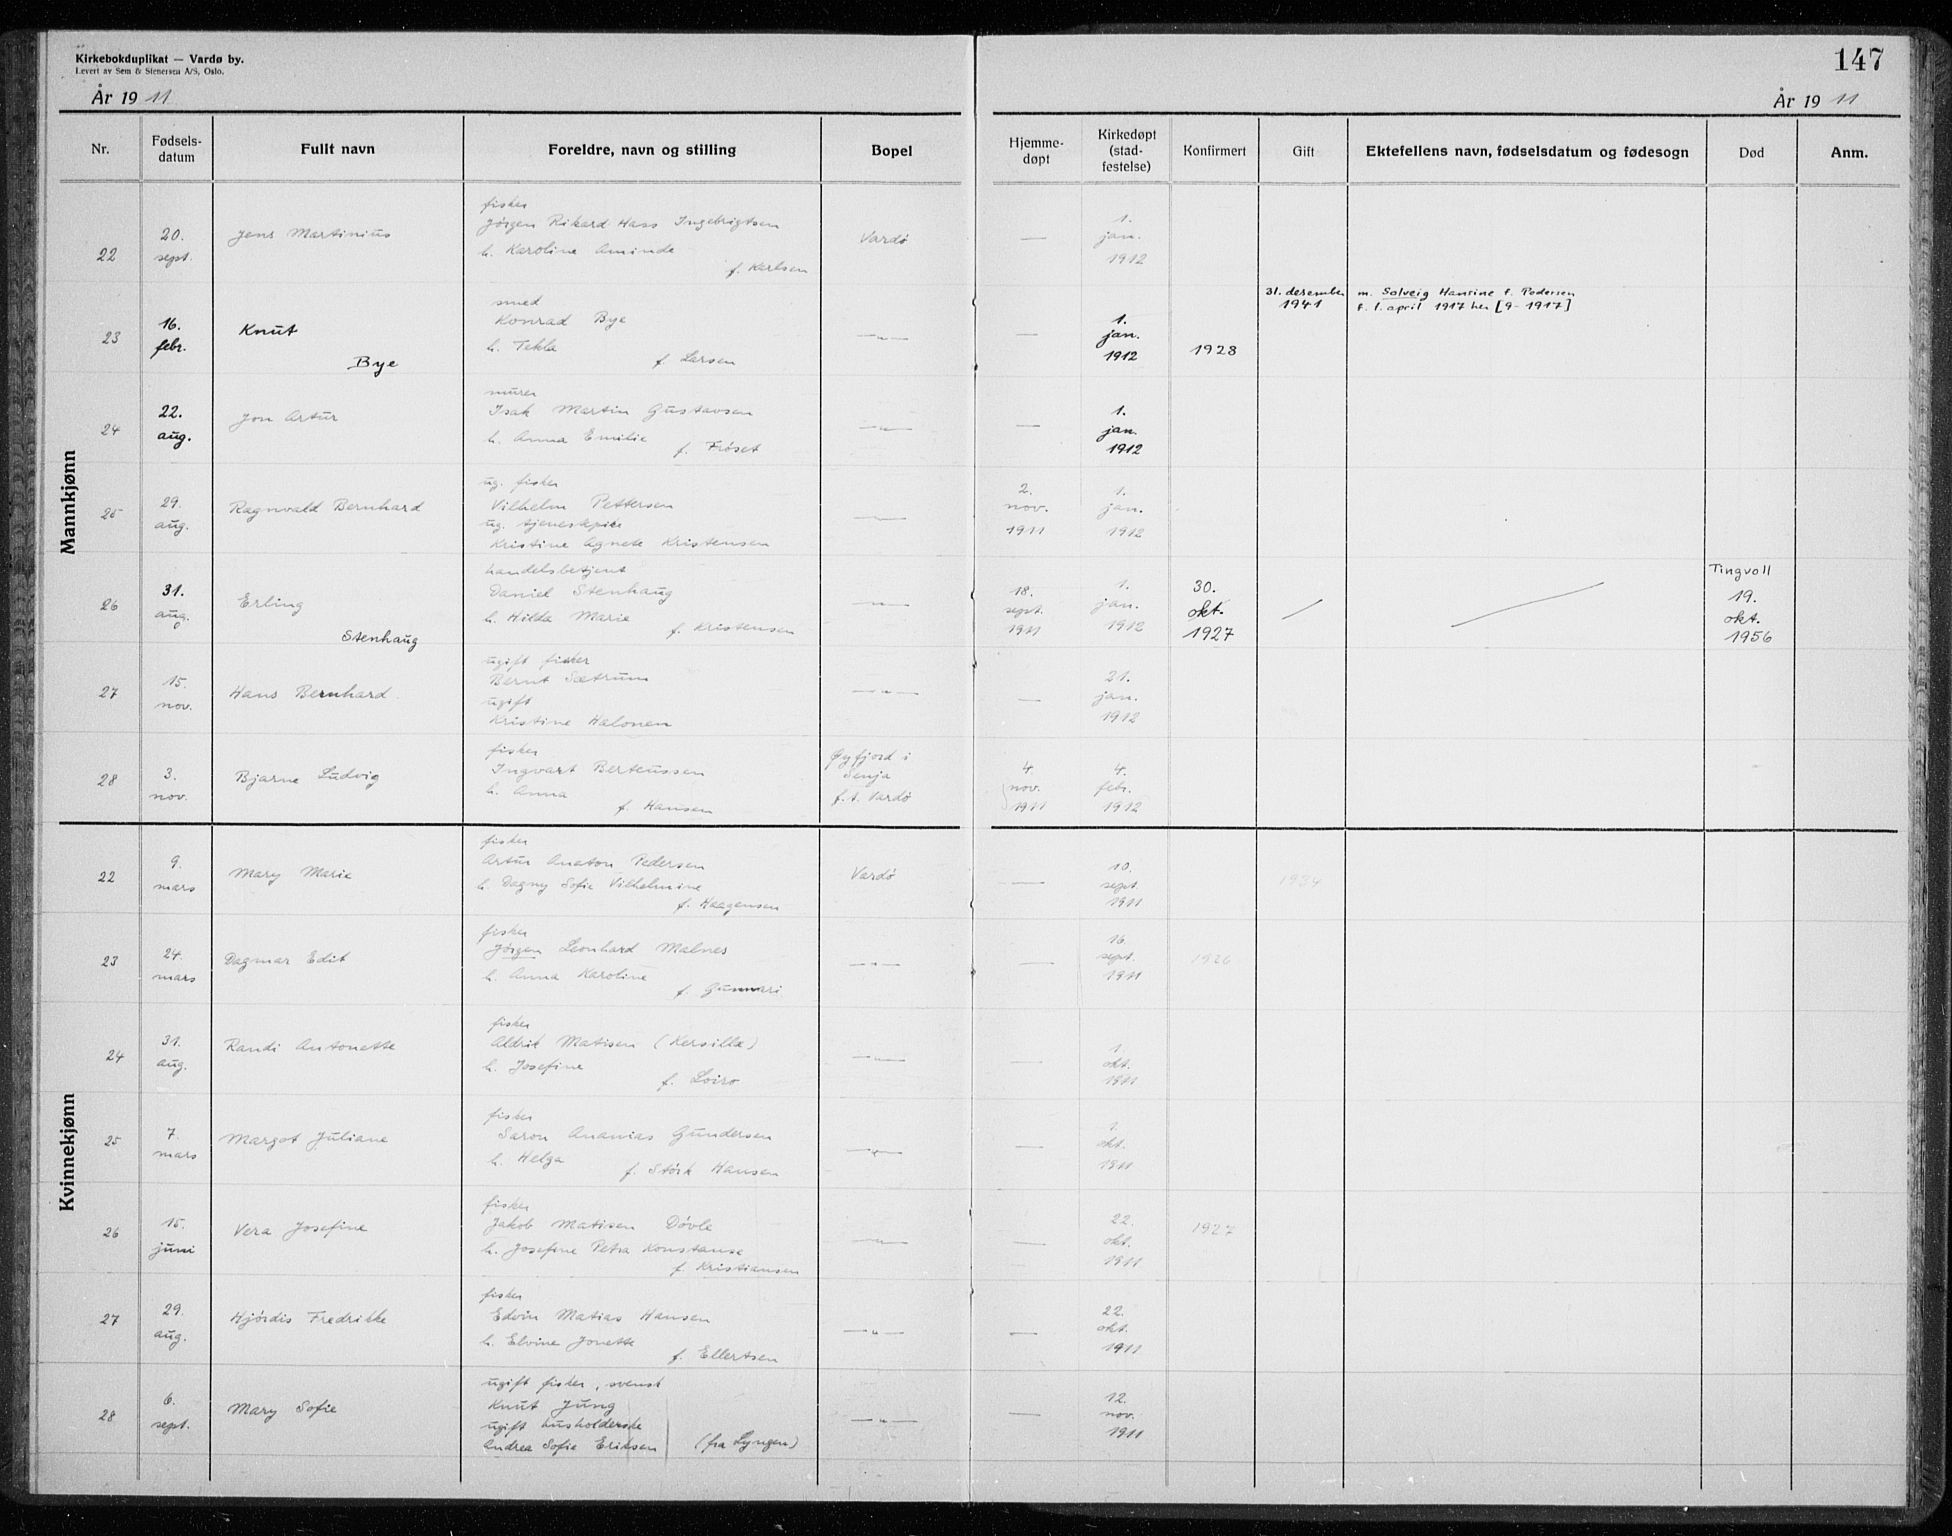 Kirkebokduplikat — Vardø by.
Levert av Sem & Stenersen A/S, Oslo.
147
År 19 11
År 19 11
Nr. Fødsels-datum Fullt navn Foreldre, navn og stilling Bopel Hjemme-døpt Kirkedøpt (stad-festelse) Konfirmert Gift Ektefellens navn, fødselsdatum og fødesogn Død Anm.
Mannkjønn
fisker
20. Jens Martinius Jørgen Rikard Hass Ingebrigtsen Vardø — 1.
22 sept. h. Karoline Aminde jan.
f. Karlsen 1912
smed 31. desember m. Solveig Hansine f. Pedersen
16. Knut Konrad Bye 1. 1941 f. 1. april 1917 her [9-1917]
23 febr. h. Tekla —"— — jan.
Bye f. Larsen 1912 1928
murer
22. Jon Artur Isak Martin Gustavsen 1.
24 aug. h. Anna Emilie —"— — jan.
f. Frøset 1912
ug. fisker
29. Ragnvald Bernhard Vilhelm Pettersen 2. 1.
25 aug. ug. tjenestepike —"— nov. jan.
Kristine Agnete Kristensen 1911 1912
handelsbetjent Tingvoll
31. Erling Daniel Stenhaug 18. 1. 30. 19.
26 aug. h. Hilda Marie —"— sept. jan. okt. okt.
Stenhaug f. Kristensen 1911 1912 1927 1956
ugift fisker
15. Bernt Sætrum 21.
27 nov. Hans Bernhard ugift —"— — jan.
Kristine Halonen 1912
fisker Øyfjord i
3. Bjarne Ludvig Ingvart Berteussen Senja 4 4.
28 nov. h. Anna f.t. Vardø nov. febr.
f. Hansen 1911 1912
Kvinnekjønn
fisker
9. Mary Marie Artur Anaton Pedersen Vardø 10.
22 mars h. Dagny Sofie Vilhelmine — sept. 1934
f. Haagensen 1911
fisker
24. Dagmar Edit Jørgen Leonhard Malnes 16.
23 mars h. Anna Karoline —"— — sept. 1926
f. Gunnari 1911
fisker
31. Randi Antonette Aldrik Matisen (Kersillæ) 1.
24 aug. h. Josefine —"— — okt.
f. Loiro 1911
fisker
7. Margot Juliane Saron Ananias Gundersen 1.
25 mars h. Helga —"— — okt.
f. Störk Hansen 1911
fisker
15. Vera Josefine Jakob Matisen Døvle 22. 1927
26 juni h. Josefine Petra Konstanse —"— — okt.
f. Kristiansen 1911
fisker
29. Hjørdis Fredrikke Edvin Matias Hansen 22.
27 aug. h. Elvine Jonette —"— — okt.
f. Ellertsen 1911
ugift fisker, svensk
6. Mary Sofie Knut Jung 12.
28 sept. ugift husholderske —"— — nov.
Andrea Sofie Eriksen (fra Lyngen) 1911